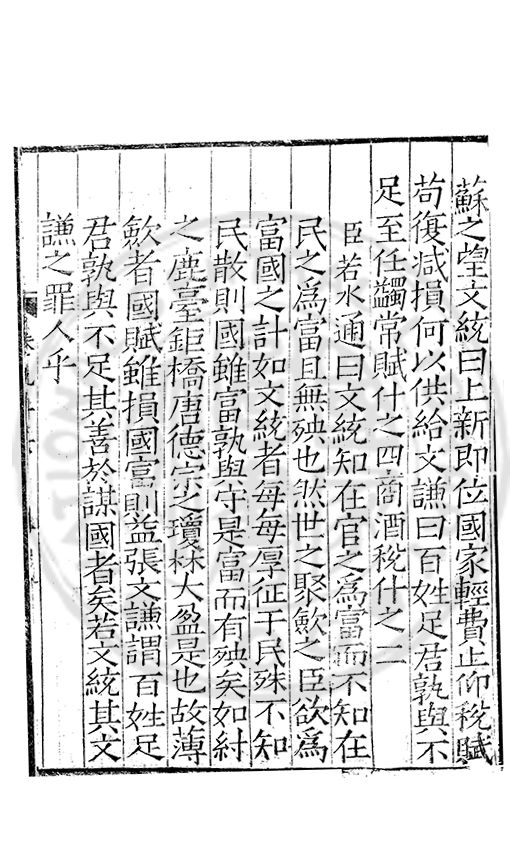 蘇之望文統曰上新即位國家輕費止仰稅賦
苟復減損何以供給文謙曰百姓足君孰與不
足至任蠲常賦什之四商酒稅什之二
臣若水通曰文統知在官之爲富而不知在
民之爲富且無殃也然世之聚歛之臣欲爲
富國之計如文統者每每厚征于民殊不知
民散則國雖富孰與守是富而有殃矣如紂
之鹿臺鉅橋唐德宗之瓊林大盈是也故薄
歛者國賦雖損國富則益張文謙謂百姓足
君孰與不足其善於謀國者矣若文統其文
謙之罪人乎